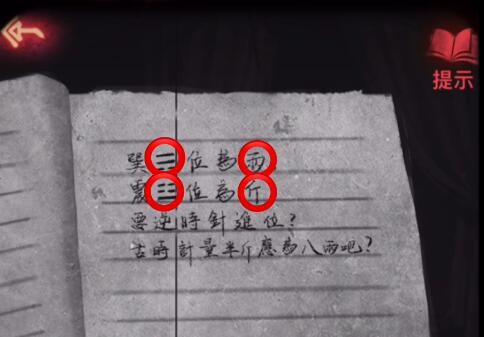 提示
巽☴位為兩
震☳位為斤
要逆時針進位?
古時計量半斤應為八兩吧?